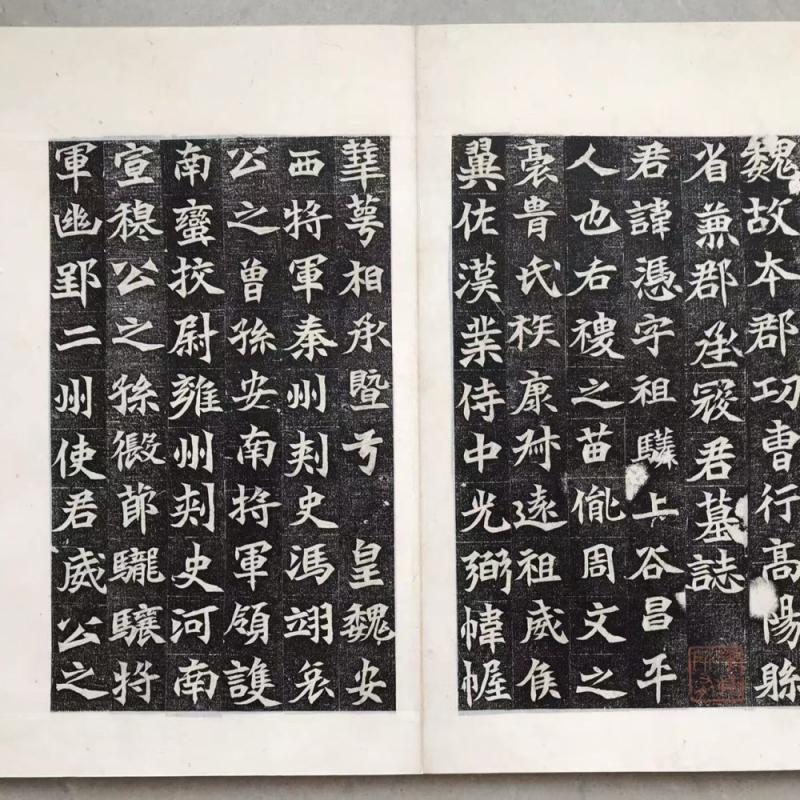 魏故本郡功曹行高陽縣
省兼郡丞寇君墓誌
君諱憑字祖驎上谷昌平
人也右稷之苗胤周文之
裔胄氏族康叔遠祖威侯
翼佐漢業侍中光弼幃幄
蕐萼相承曁于皇魏安
西將軍秦州刾史馮翊哀
公之曾孫安南將軍領護
南蠻挍尉雍州刾史河南
宣穆公之孫假節驣驤將
軍幽郢二州使君威公之